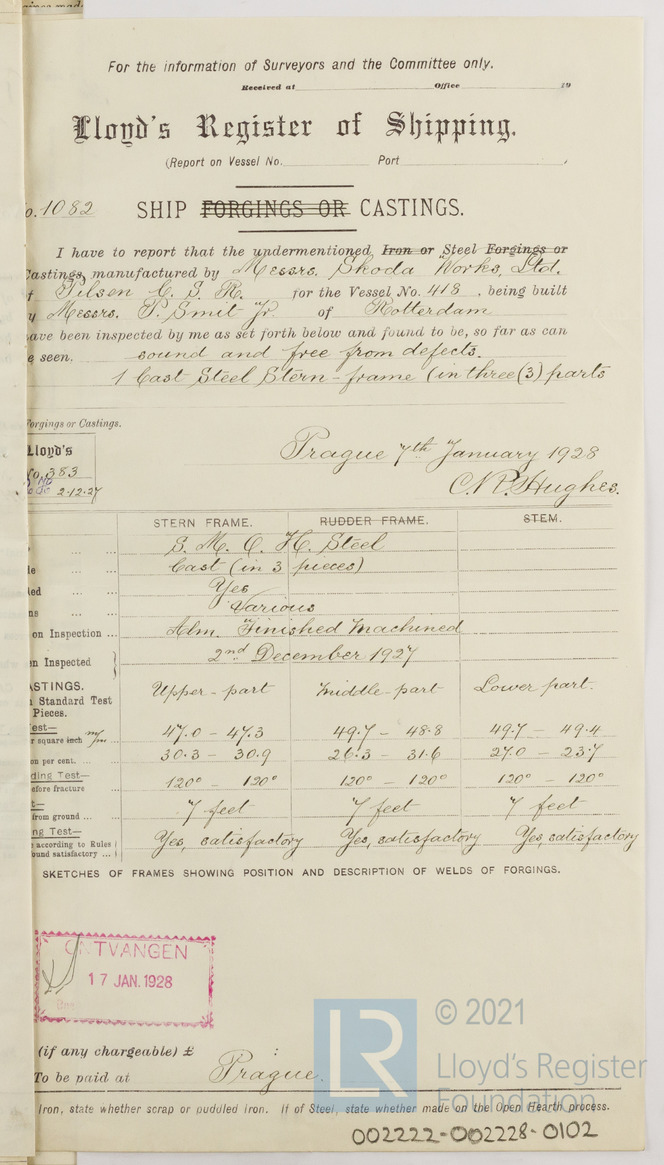 For the information of Surveyors and the Committee only.
Received at Office 19
Lloyd's Register of Shipping.
(Report on Vessel No. Port
o. 1082
SHIP FORGINGS OR CASTINGS.
I have to report that the undermentioned Iron or Steel Forgings or
Castings, manufactured by Messrs. Skoda Works, Ltd.
f Pilsen C. S. R. for the Vessel No. 418, being built
y Messrs. P. Smit Jr. of Rotterdam
ave been inspected by me as set forth below and found to be, so far as can
e seen. sound and free from defects.
1 Cast Steel Stern-frame (in three (3) parts
Forgings or Castings.
Lloyd's
No. 383
2.12.27
Prague 7th January 1928
C.R. Hughes.
STERN FRAME. RUDDER FRAME. STEM.
S. M. O. H. Steel
de Cast (in 3 pieces)
ed Yes
ns Various
on Inspection ... Finished Machined
en Inspected 2nd December 1927
ASTINGS.
Standard Test
Pieces.
Upper-part middle-part Lower part.
est—
r square inch 47.0 – 47.3 49.7 – 48.8 49.7 – 49.4
on per cent. ... 30.3 – 30.9 26.3 – 31.6 27.0 – 23.7
ding Test—
efore fracture 120° – 120° 120° – 120° 120° – 120°
t—
from ground ... 7 feet 7 feet 7 feet
ng Test—
according to Rules
ound satisfactory ... Yes, satisfactory Yes, satisfactory Yes, satisfactory
SKETCHES OF FRAMES SHOWING POSITION AND DESCRIPTION OF WELDS OF FORGINGS.
ONTVANGEN
17 JAN. 1928
(if any chargeable) £ :
To be paid at Prague.
Iron, state whether scrap or puddled iron. If of Steel, state whether made on the Open Hearth process.
LR
© 2021
Lloyd's Register
Foundation
002222-002228-0102